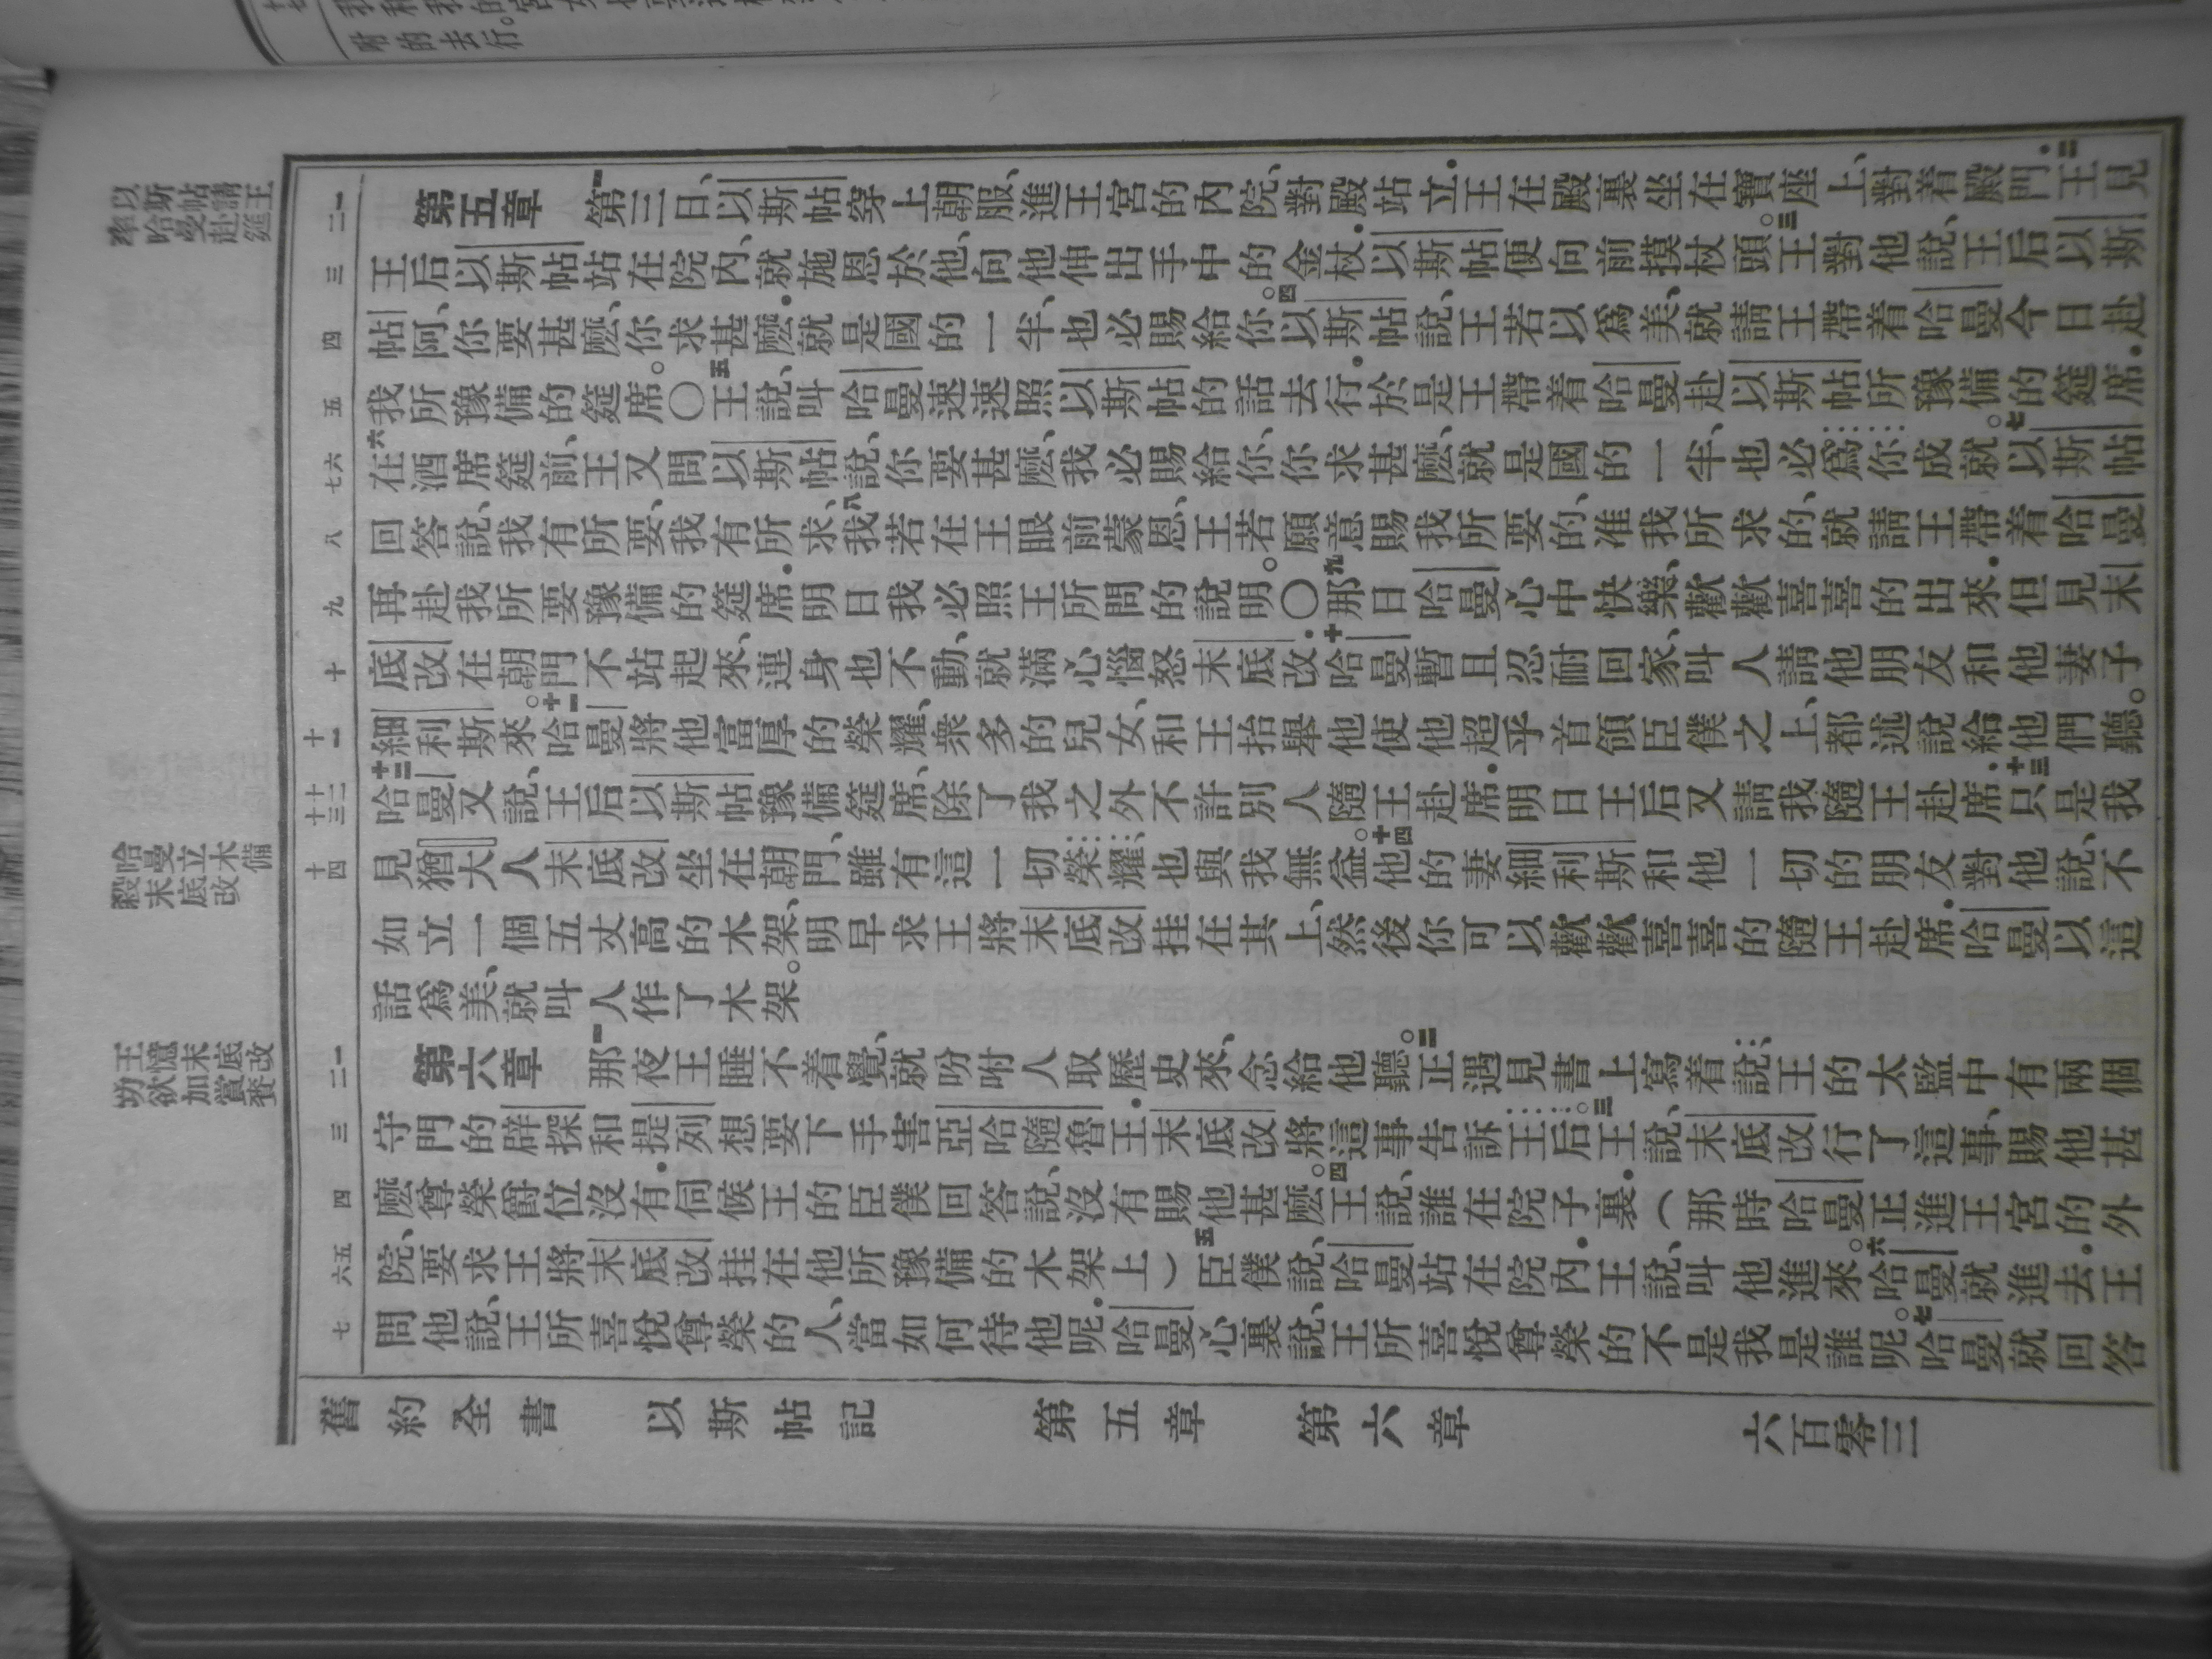 以斯帖請王
率哈曼赴筵
哈曼立木備
殺末底改
王憶末底改
功欲加賞賚
一二
第五章 一第三日、以斯帖穿上朝服、進王宮的內院、對殿站立．王在殿裏坐在寶座上、對着殿門．二王見
三
王后以斯帖站在院內、就施恩於他、向他伸出手中的金杖．以斯帖便向前摸杖頭。三王對他說、王后以斯
四
帖阿、你要甚麽、你求甚麽．就是國的一半、也必賜給你。四以斯帖說、王若以爲美、就請王帶着哈曼今日赴
五
我所豫備的筵席。〇五王說、叫哈曼速速照以斯帖的話去行．於是王帶着哈曼赴以斯帖所豫備的筵席．
六七
六在酒席筵前、王又問以斯帖說、你要甚麽、我必賜給你、你求甚麽、就是國的一半、也必爲你成就。七以斯帖
八
回答說、我有所要、我有所求、八我若在王眼前蒙恩、王若願意賜我所要的、准我所求的、就請王帶着哈曼
九
再赴我所要豫備的筵席．明日我必照王所問的說明。〇九那日哈曼心中快樂、歡歡喜喜的出來．但見末
十
底改在朝門不站起來、連身也不動、就滿心惱怒末底改．十哈曼暫且忍耐回家、叫人請他朋友和他妻子
十一
細利斯來。十一哈曼將他富厚的榮耀、衆多的兒女、和王抬舉他使他超乎首領臣僕之上、都述說給他們聽。
十二十三
十二哈曼又說、王后以斯帖豫備筵席、除了我之外不許別人隨王赴席．明日王后又請我隨王赴席．十三只是我
十四
見猶大人末底改坐在朝門、雖有這一切榮耀、也與我無益。十四他的妻細利斯和他一切的朋友對他說、不
如立一個五丈高的木架、明早求王將末底改挂在其上、然後你可以歡歡喜喜的隨王赴席．哈曼以這
話爲美、就叫人作了木架。
一二
第六章 一那夜王睡不着覺、就吩咐人取歷史來、念給他聽。二正遇見書上寫着說、王的太監中有兩個
三
守門的辟探和提列想要下手害亞哈隨魯王．末底改將這事告訴王后。三王說、末底改行了這事、賜他甚
四
麽尊榮爵位沒有．伺候王的臣僕回答說、沒有賜他甚麽。四王說、誰在院子裏．（那時哈曼正進王宮的外
五六
院、要求王將末底改挂在他所豫備的木架上）五臣僕說、哈曼站在院內．王說、叫他進來。六哈曼就進去．王
七
問他說、王所喜悅尊榮的人、當如何待他呢．哈曼心裏說、王所喜悅尊榮的不是我是誰呢。七哈曼就回答
舊約全書 以斯帖記 第五章 第六章 六百零三